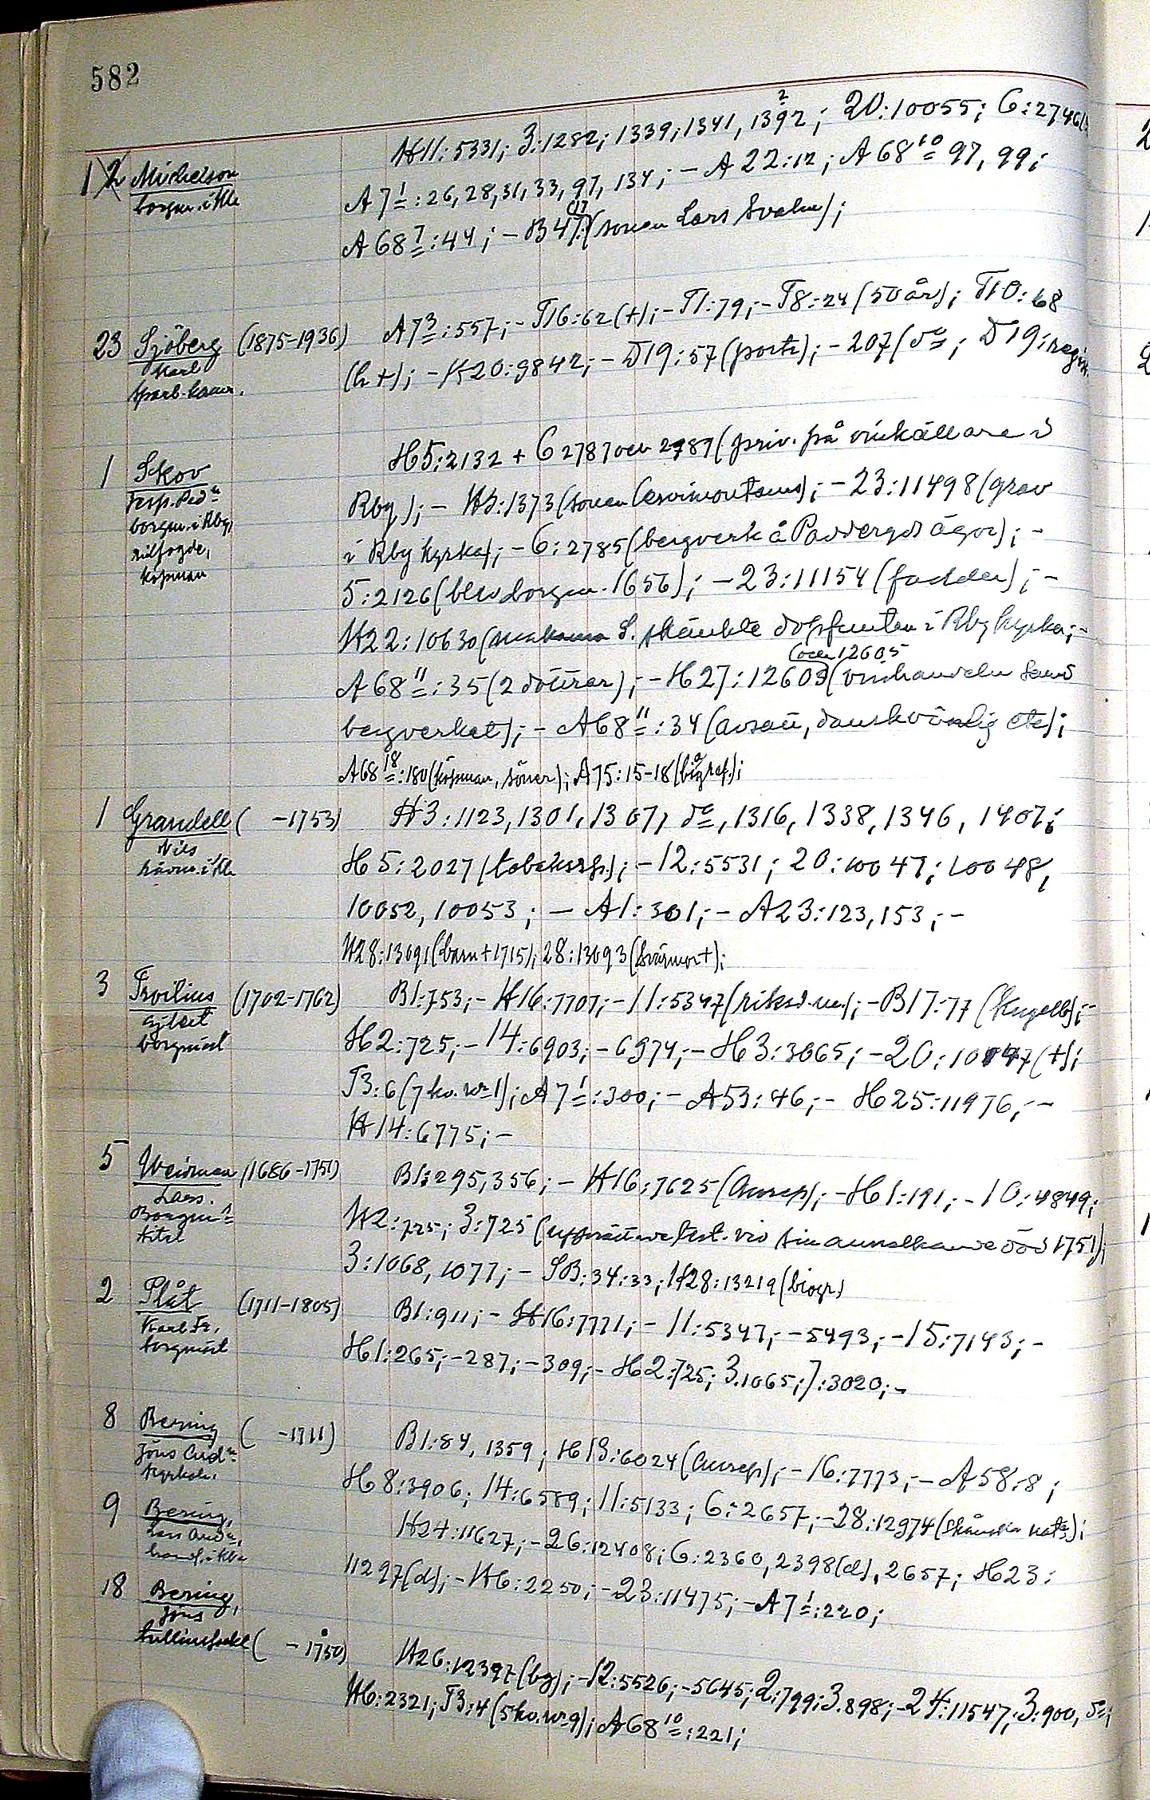 582
12 Michelson H11:5331; 3:1282; 1339; 1341, 1392; 20:10055; 6:2746
borgm. i Kba A7¹:26, 28, 31, 33, 97, 134; - A22:12; A68¹⁰ 97, 99;
A68⁷:44; - B47:17 (sonen Lars Svahn);
23 Sjöberg (1875-1936) A7³:557; - T16:62(+); - T1:79; - T8:24 (50 år); T10:68
Karl (h+); - K20:9842; - D19:57 (portr); - 207 (d:o; D19:
Sparb.kamr.
1 Skov H5:2132 + 6 2787 och 2789 (priv. på vinkällare i
Jesp. Ped:n Rby); - H3:1373 (sonen ); - 23:11498 (grav
borgm. i Rby, i Rby kyrka); - 6:2785 (bergverk å ägor); -
tullfogde, 5:2126 (blev borgm. 1656); - 23:11154 (fadder); -
köpman H22:10630 ( S. skänkte dopfunten i Rby kyrka; -
och 12605
A68¹¹:35 (2 döttrar); - H27:12603 (vinhandeln samt
bergverket); - A68¹¹:34 (avsatt, danskvänlig etc);
A68¹⁸:180 (köpman, söner); A75:15-18 (biograf.);
1 Grandell ( -1753) H3:1123, 1301, 1307, d:o, 1316, 1338, 1346, 1407;
Nils H5:2027 (tobakssp.); - 12:5531; 20:10047; 10048,
i Kba 10052, 10053; - A1:301; - A23:123, 153; -
H28:13091 (barn +1715); 28:13093 (Svärmor +);
3 Troilius (1702-1762) B1:753; - H16:7707; - 11:5347 (riksd.m.); - B17:77 (Kngelb); -
borgmäst H2:725; - 14:6903; - 6974; - H3:3065; - 20:10047 (+);
T3:6 (7 ko. nr 1); A7¹:300; - A53:46; - H25:11976; -
H14:6775; -
5 Weidman (1686-1751) B1:295, 356; - H16:7625 (Ansep); - H1:191; - 10:4849;
Lars. H2:725; 3:725 (upprättade test. vid sin annalkande död 1751);
Borgm:s 3:1068, 1077; - SB:34:33; H28:13219 (biogr)
titel
2 Plåt (1711-1805) B1:911; - H16:7771; - 11:5347; - 5493; - 15:7143; -
Karl Fr, H1:265; - 287; - 309; - H2:725; 3.1065; 7:3020; -
borgmäst
8 Bering ( -1711) B1:84, 1359; H13:6024 (Ansep); - 16:7773; - A58:8;
Jöns And:n H8:3906; 14:6589; 11:5133; 6:2657; - 28:12974 (Skånska );
kyrkoh.
9 Bering, H24:11627; - 26:12408; 6:2360, 2398(d), 2657; H23:
Lars And:n, 11297(d); - H6:2250; - 23:11475; - A7¹:220;
handl. i Kba
18 Bering,
Jöns
tullinspekt ( -1750) H26:12397 (bg); - 12:5526; - 5645; 2:799; 3.898; - 24:11547; 3:900, d:o;
H6:2321; T3:4 (5 ko. nr 9); A68¹⁰:221;